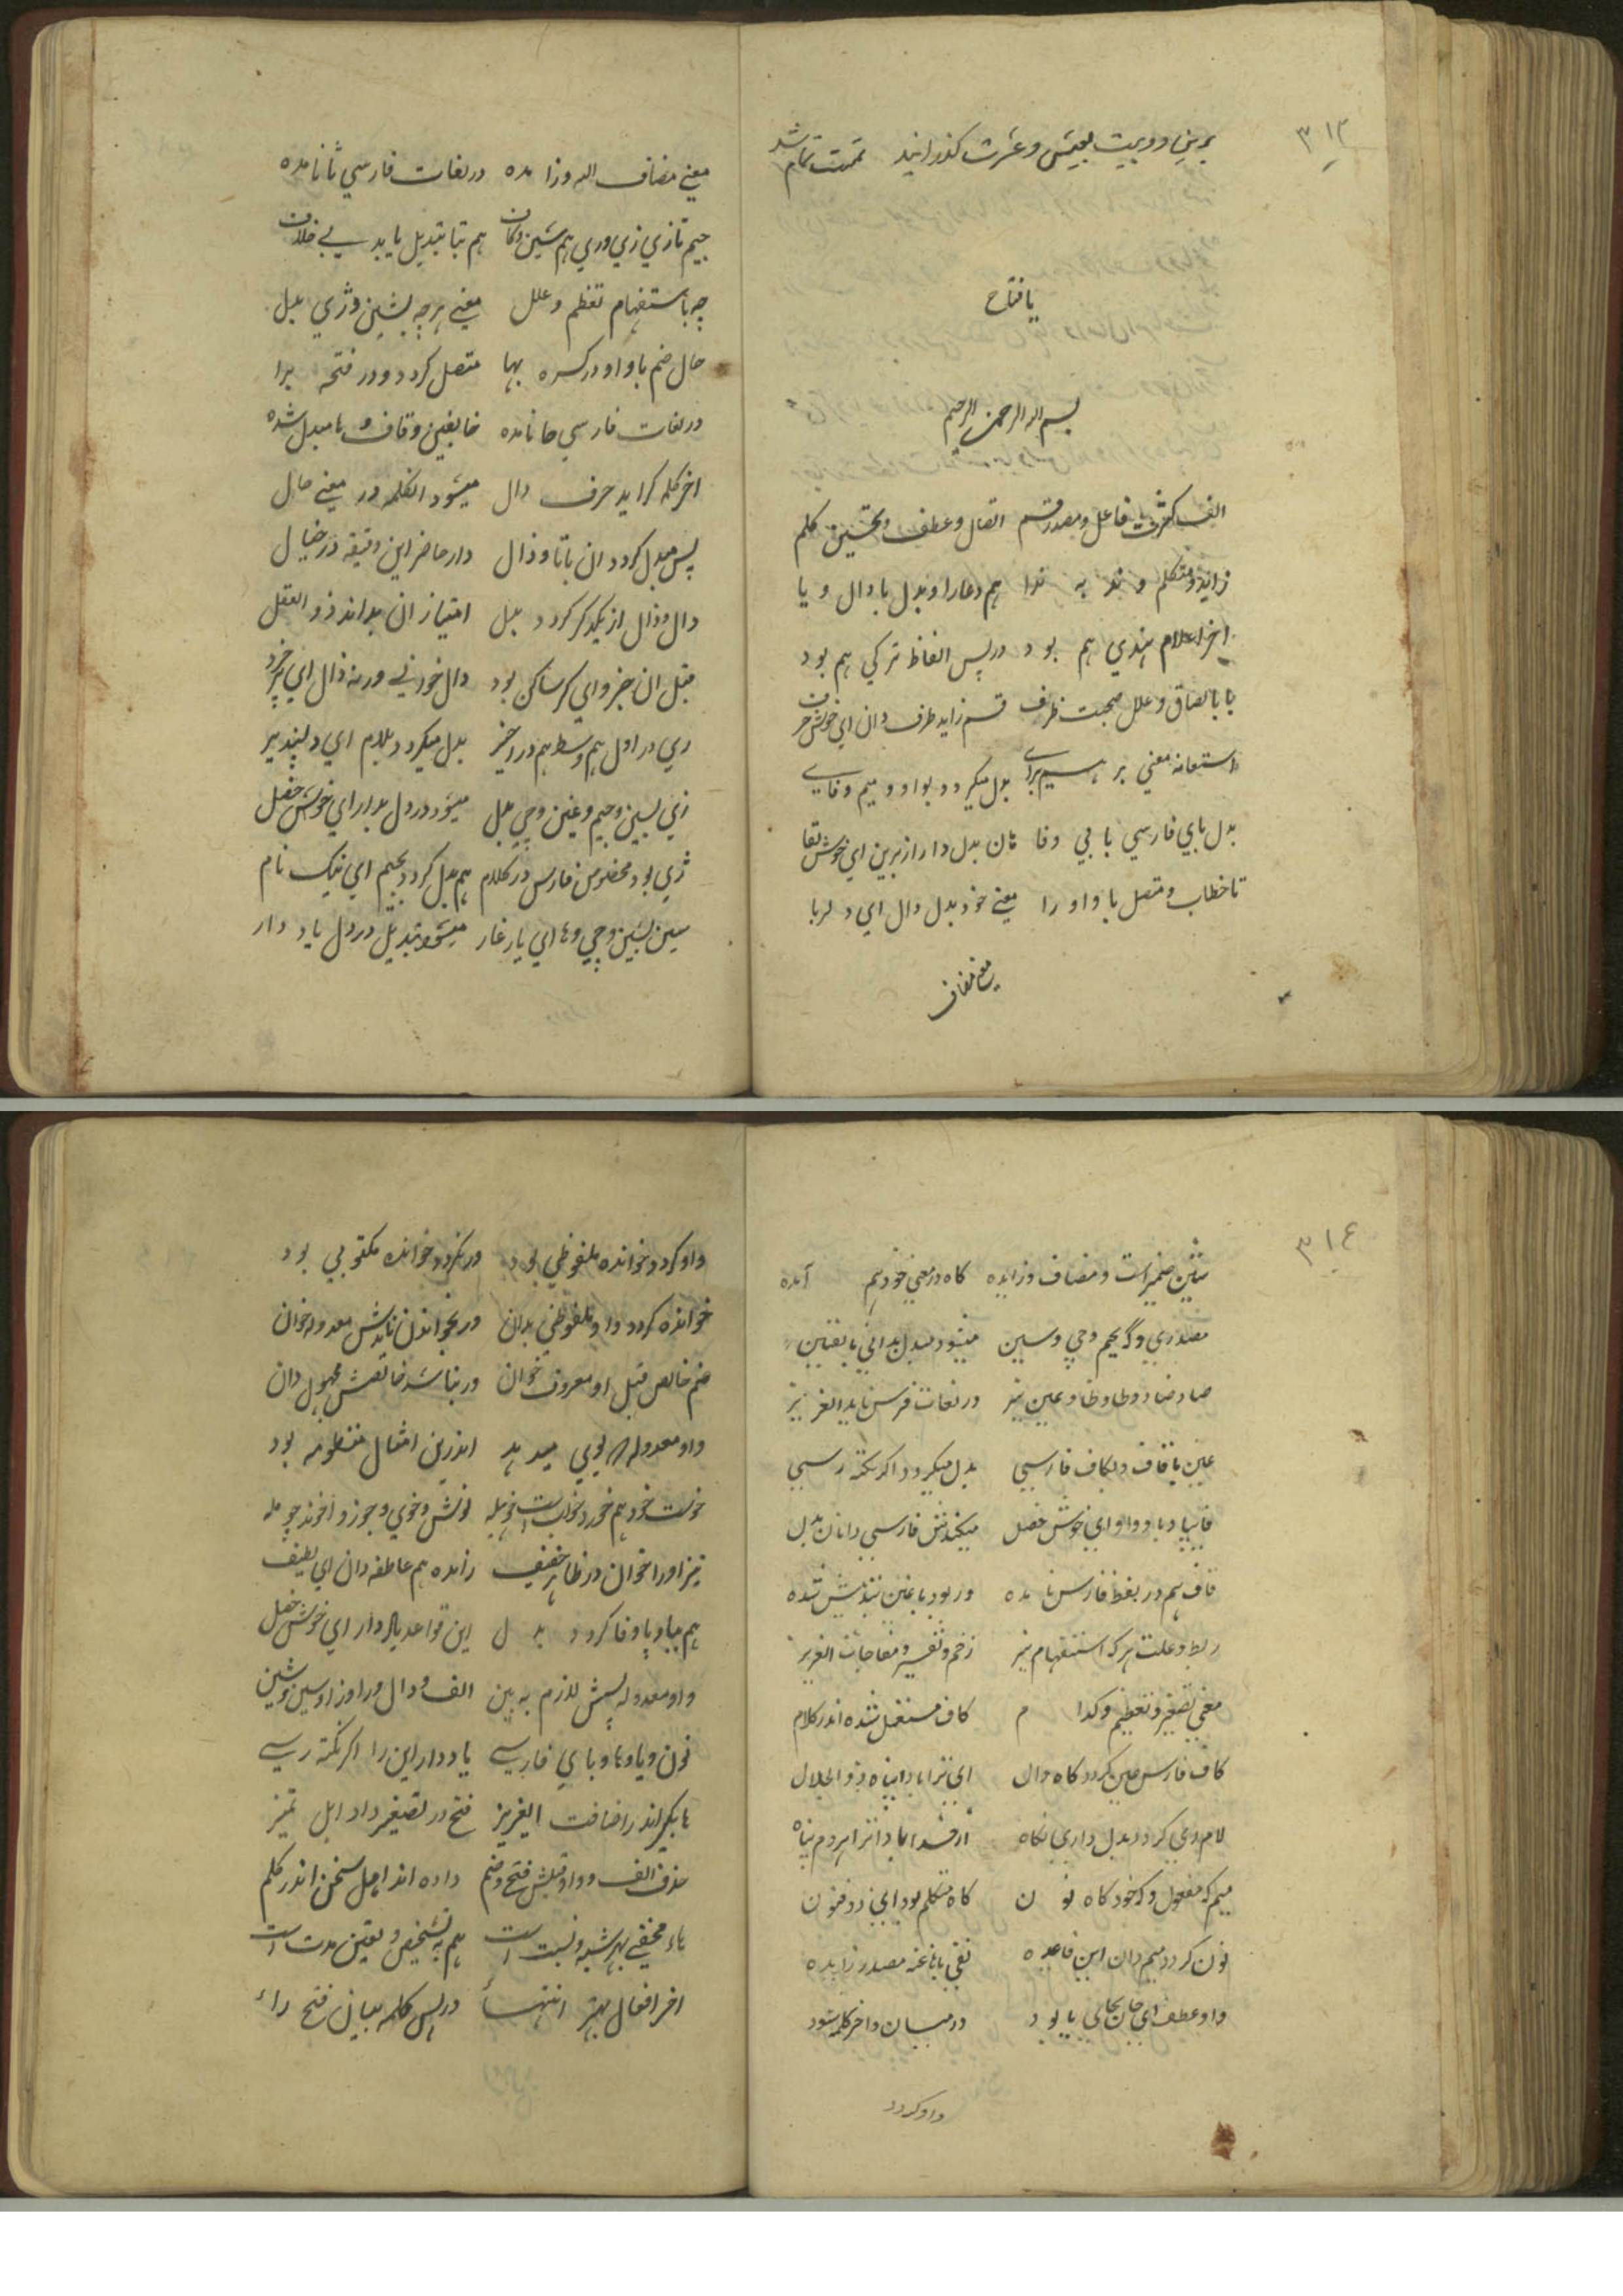 ۳۱۳
برین دو بیت بعیش و عشرت گذرانید تمت تمام شد
یا فتاح
بسم الله الرحمن الرحیم
الف کثرت فاعل و مصدر قسم اتصال و عطف و تحسین کلم
زاید و متکلم و ندبه ندا هم دعا را و بدل با دال و یا
اخر اعلام هندي هم بود در پس الفاظ ترکي هم بود
با بالصاق و علل صحبت ظرف قسم زاید طرف دان اي خوش حرف
استعانه معني بر هم براے بدل میگردد بواو و میم و فاے
بدل باي فارسي با بي و فا دان بدل دار از برین اي خوش لقا
تا خطاب و متصل با واو را معني خود بدل دال اي دلربا
معني مضاف
معني مضاف الیه و زامده در لغات فارسي ثا نامده
جیم تازي زي و ري هم شین و کاف هم بتا تبدیل یابد بے خلاف
چه باستفهام تعظم و علل معني هر چه بشین و ژي بدل
حال ضم با واو در کسره بها متصل کردد و در فتحه برا
در لغات فارسي حا نامده خا بغین و قاف و ها مبدل شده
اخر کلمه کر اید حرف دال میشود انکلمه در معني حال
پس مبدل کردد ان با تا و ذال دار حاضر این دقیقه در خیال
دال و ذال از یکدکر کردد بدل امتیاز ان بداند ذو العقل
قبل ان جز واي کر ساکن بود دال خوانے ورنه ذال اي پر خرد
ري در اول هم وسط هم در اخیر بدل میکردد بلام اي دلپذیر
زي بسین و جیم و غین و چي بدل میشود در دل بدار اي خوش خصل
ژي بود مخصوص فارس در کلام هم بدل کردد بجیم اي نیک نام
سین بشین و چي و ها اي یار غار میشود تبدیل در دل یاد دار
۳۱۴
شین ضمیر است و مضاف و زایده کاه در معني خود هم آمده
مصدري و که بجیم و چي و سین میشود مبدل بداني با یقین
صاد ضاد و طا و ظا و عین نیز در لغات فرس ناید العزیز
غین با قاف و بکاف فارسي بدل میکردد اکر نکته رسي
فا ببا و با و واو اي خوش خصل میکندش فارسي دانان بدل
قاف هم در لفظ فارس نامده ور بود با غین تبدیلش شده
ربط و علت هر که استفهام نیز زخم و تفسیر و مفاجات العزیز
معني تصغیر و تعظیم و کدام کاف مستعمل شده اندر کلام
کاف فارس غین کردد کاه دال اي ترا بادا پناه ذو الجلال
لام ري کردد بدل داري نکاه
میم که مفعول و که خود کاه نون کاه متکلم بود اي ذو فنون
نون کردد میم دان این قاعده نفي باها غنه مصدر زایده
واو عطف اي جان بجاي یا بود در میان و اخر کلمه شود
واو کردد
واو کردد خوانده ملفوظي بود ور نکردد خوانده مکتوبي بود
خوانده کردد واو ملفوظي بدان ور بخواندن نایدش معدوله خوان
ضم خالص قبل او معروف خوان ور نباشد خالصش مجهول دان
واو معدوله بویي میدهد اندرین امثال منظومه بود
نیز او را خوان در ظاهر خفیف زایده هم عاطفه دان اي لطیف
هم ببا و پا و فا کردد بدل این قواعد یاد دار اي خوش خصل
واو معدوله پسش لازم به بین الف و دال و را و زا و سین و شین
نون و یا و ها و باي فارسے یاد دار این را اکر نکته رسے
ها بکسر اندر اضافت العزیز فتح در تصغیر داد اهل تمیز
حذف الف و واو قبلش فتح و ضم داده اند اهل سخن اندر کلم
هاء مخفي بهر شبه و نسبت است هم به تشخیص و تعین مدت است
اخر افعال بهر انتهاء در پس کلمه بیان فتح راء